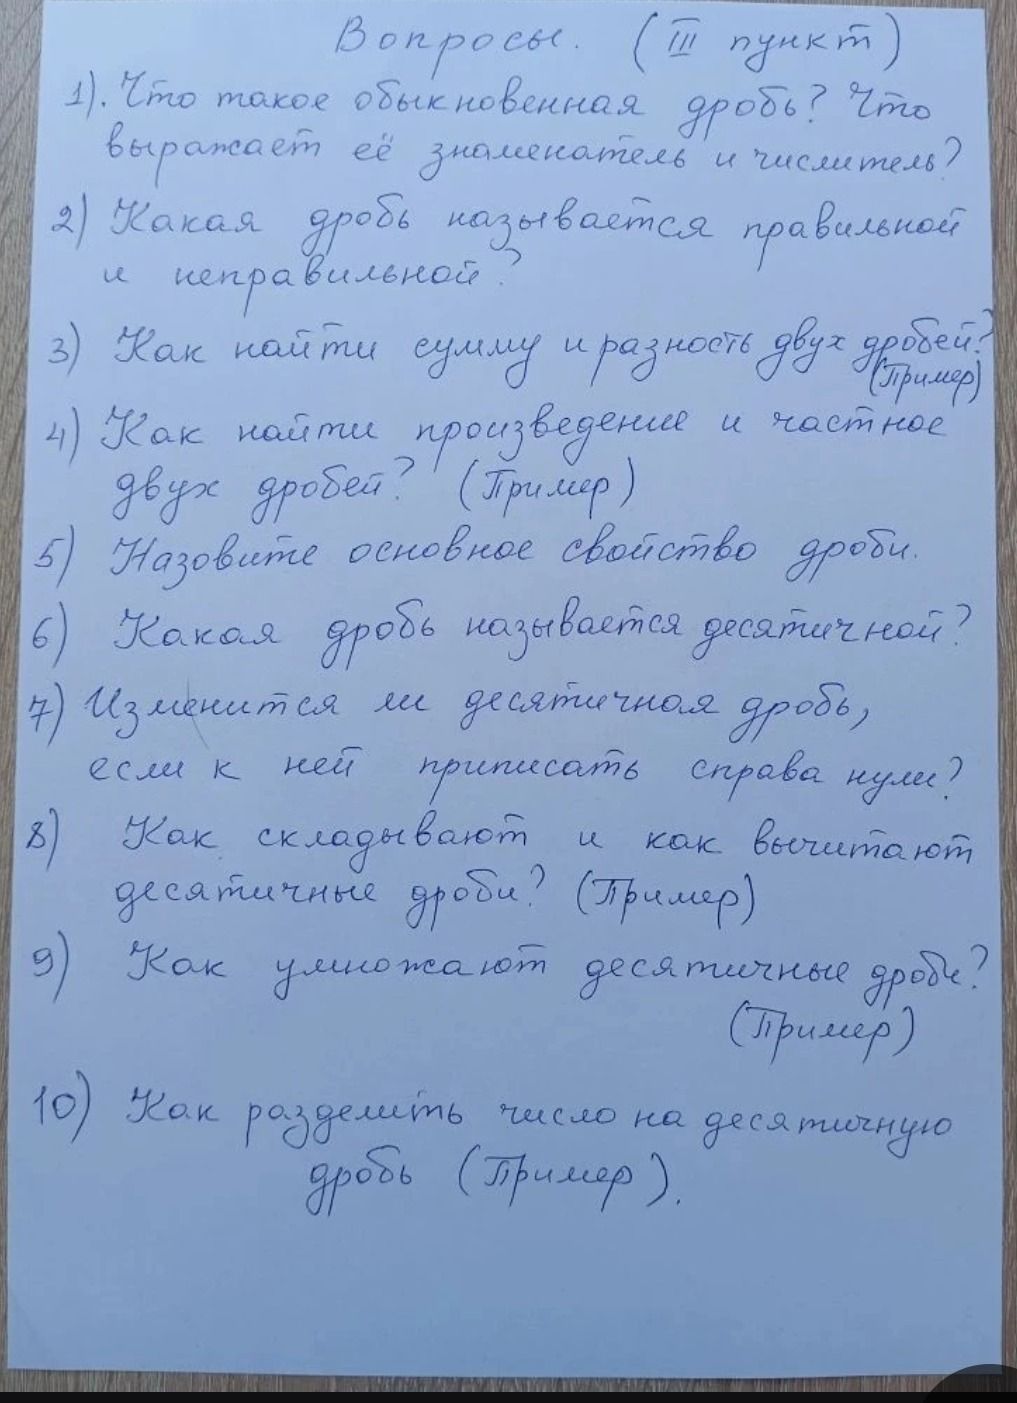 Вопросы. (III пункт)
1). Что такое обыкновенная дробь? Что
выражает её знаменатель и числитель?
2) Какая дробь называется правильной
и неправильной?
3) Как найти сумму и разность двух дробей?
(Пример)
4) Как найти произведение и частное
двух дробей? (Пример)
5) Назовите основное свойство дроби.
6) Какая дробь называется десятичной?
7) Изменится ли десятичная дробь,
если к ней приписать справа нули?
8) Как складывают и как вычитают
десятичные дроби? (Пример)
9) Как умножают десятичные дроби?
(Пример)
10) Как разделить число на десятичную
дробь (Пример).